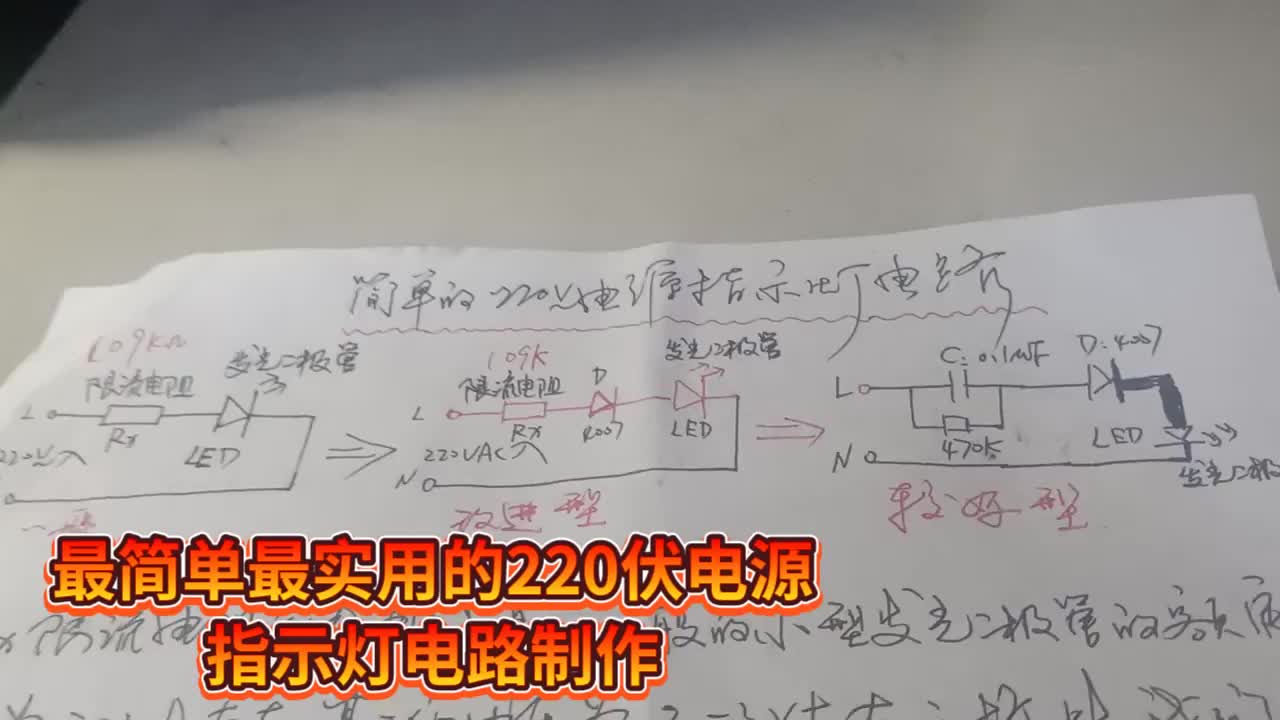 简单的220V电源指示灯电路
109KΩ
限流电阻
发光二极管
L
Rx
LED
220V入
109K
限流电阻
D
发光二极管
L
Rx
4007
LED
220VAC入
N
改进型
C:0.1uF
D:4007
L
470K
LED
N
发光二极管
较好型
最简单最实用的220伏电源
指示灯电路制作
限流电
的小型发光二极管的额定